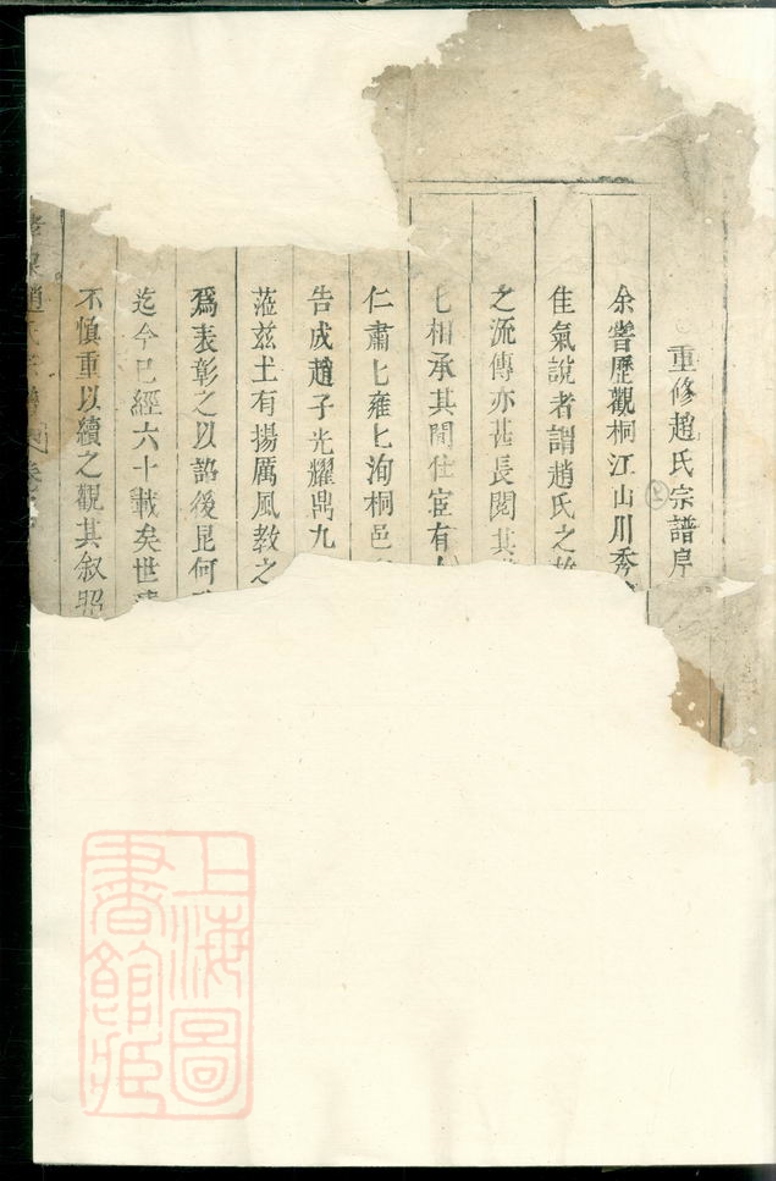 重修趙氏宗譜序
余嘗歷觀桐江山川秀
佳氣說者謂趙氏之故
之流傳亦甚長閱其
匕相承其間仕宦有
仁肅匕雍匕洵桐邑
告成趙子光耀鼎九
蒞兹土有揚厲風教之
爲表彰之以詔後昆何
迄今已經六十載矣世
不慎重以續之觀其叙昭
趙氏宗譜
上海圖
書館藏